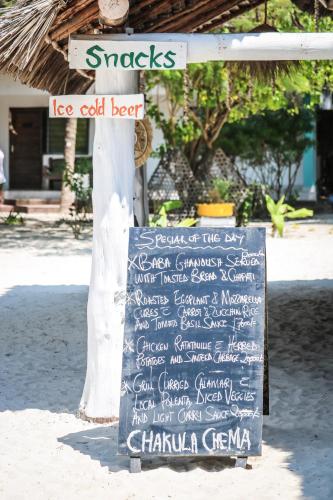 Snacks
Ice cold beer
Special of the day
X Baba Ghanoush Served
with Toasted Bread & Chapati
X Roasted Eggplant & Mozzarella
Cubes & Carrot & Zucchini Rice
And Tomato Basil Sauce
X Chicken Ratatouille & Herbed
Potatoes and Sauteed Cabbage
X Grill Curried Calamari &
Local Polenta, Diced Veggies
And Light Curry Sauce
Chakula Chema